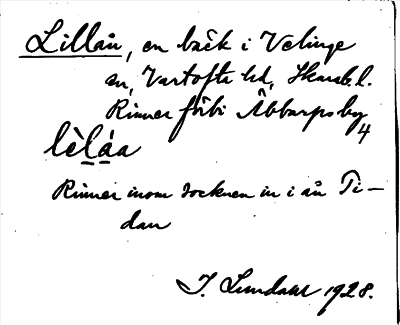 Lillån, en bäck i Velinge
sn, Vartofta hd, Skarab. l.
Rinner förbi Åbbarpsby
4
lèláa
Rinner inom socknen in i ån Ti-
dan
I. Lundahl 1928.